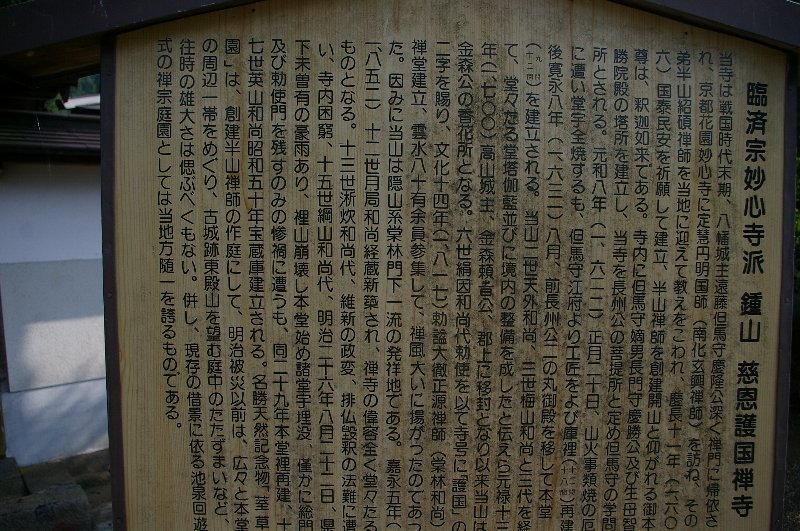 臨済宗妙心寺派 鍾山 慈恩護国禅寺
当寺は戦国時代末期、八幡城主遠藤但馬守慶隆公深く禅門に帰依
れ、京都花園妙心寺に定慧円明国師（南化玄興禅師）を訪ね、その
弟半山紹碩禅師を当地に迎えて教えをこわれ、慶長十一年（一六〇
六）国泰民安を祈願して建立、半山禅師を創建開山と仰がれる御
尊は、釈迦如来である。寺内に但馬守嫡男長門守慶勝公及び生母智
勝院殿の塔所を建立し、当寺を長州公の菩提所と定め但馬守の学問
所とされる。元和八年（一六二二）正月二十日、山火事類焼の厄
に遭い堂宇全焼するも、但馬守江府より工匠をよび庫裡
再建
後寛永八年（一六三一）八月、前長州公二の丸御殿を移して本堂
を建立される。当山二世天外和尚 三世梅山和尚と三代を経
て、堂々たる堂塔伽藍並びに境内の整備を成したと伝えら元禄十三
年（一七〇〇）高山城主、金森頼旹公、郡上に移封となり以来当山は
金森公の香花所となる。六世絹因和尚代勅使を以て寺号に「護国」の
二字を賜り、文化十四年（一八一七）勅諡大徹正源禅師（棠林和尚）
禅堂建立、雲水八十有余員参集して、禅風大いに揚がったのであっ
た。因みに当山は隠山系棠林門下一流の発祥地である。嘉永五年（
一八五二）十二世月局和尚経蔵新築され、禅寺の偉容全く堂々たる
ものとなる。十三世淅炊和尚代、維新の政変、排仏毀釈の法難に遭
い、寺内困窮、十五世綱山和尚代、明治二十六年八月二十二日、県
下未曽有の豪雨あり、裡山崩壊し本堂始め諸堂宇埋没 僅かに総門
及び勅使門を残すのみの惨禍に遭うも、同二十九年本堂裡再建、十
七世英山和尚昭和五十年宝蔵庫建立される。名勝天然記念物「荎草
園」は、創建半山禅師の作庭にして、明治被災以前は、広々と本堂
の周辺一帯をめぐり、古城跡東殿山を望む庭中のたたずまいなど、
往時の雄大さは偲ぶべくもない。併し、現存の借景に依る池泉回遊
式の禅宗庭園としては当地方随一を誇るものである。